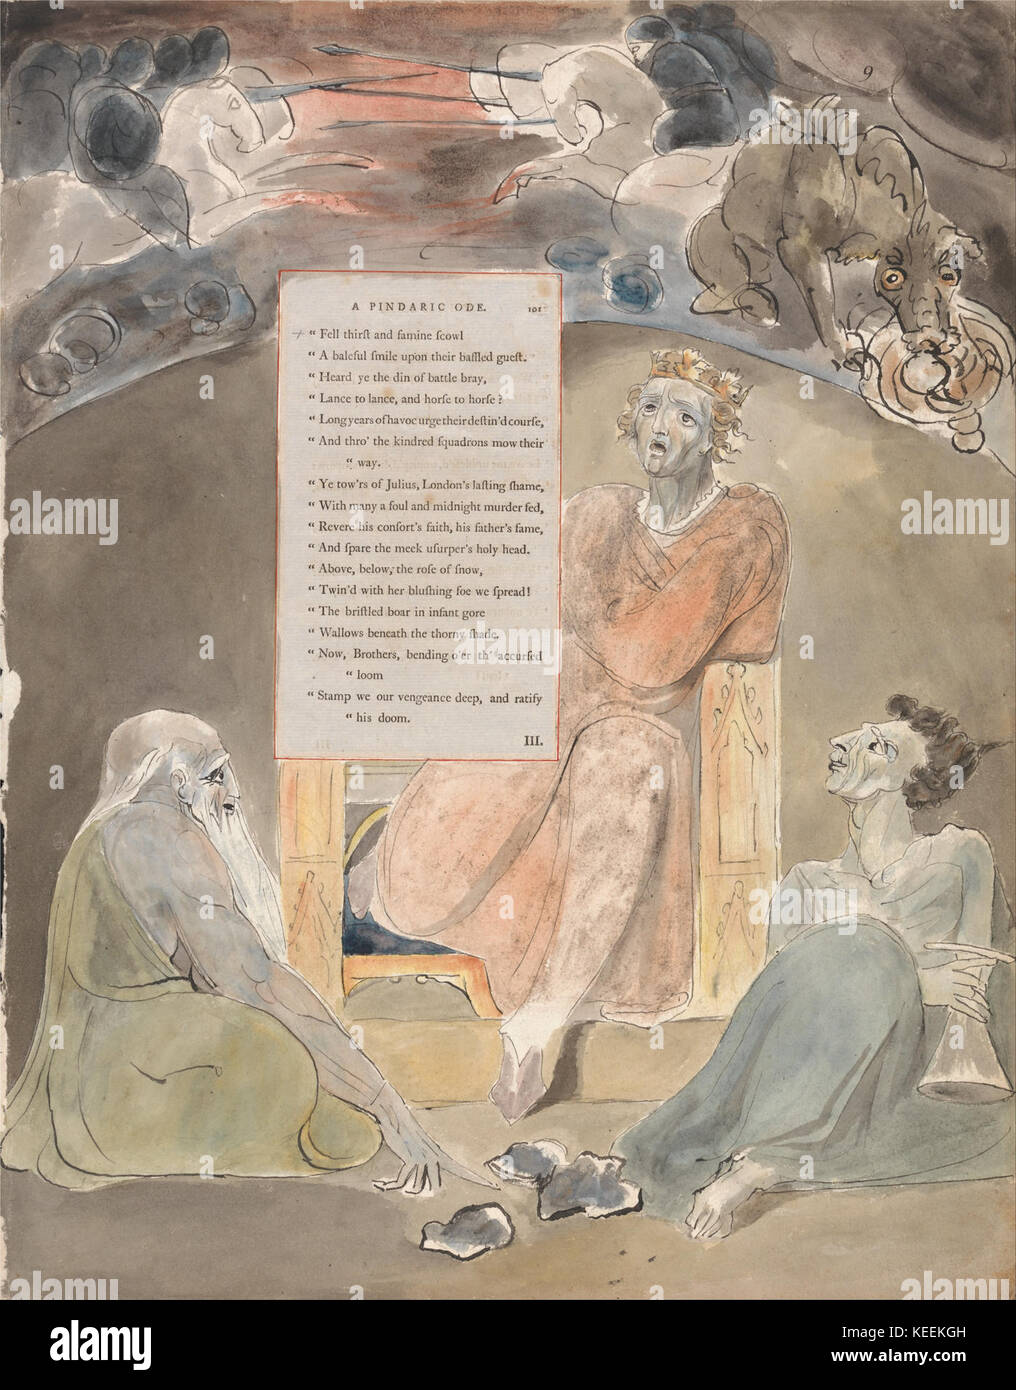 9
A PINDARIC ODE. 101
“ Fell thirſt and famine ſcowl
“ A baleful ſmile upon their baffled gueſt.
“ Heard ye the din of battle bray,
“ Lance to lance, and horſe to horſe?
“ Long years of havoc urge their deſtin'd courſe,
“ And thro' the kindred ſquadrons mow their
“ way.
“ Ye tow'rs of Julius, London's laſting ſhame,
“ With many a foul and midnight murder fed,
“ Revere his conſort's faith, his father's fame,
“ And ſpare the meek uſurper's holy head.
“ Above, below, the roſe of ſnow,
“ Twin'd with her bluſhing foe we ſpread!
“ The briſtled boar in infant gore
“ Wallows beneath the thorny ſhade.
“ Now, Brothers, bending o'er th' accurſed
“ loom
“ Stamp we our vengeance deep, and ratify
“ his doom.
III.
alamy
alamy stock photo
Image ID: KEEKGH
www.alamy.com